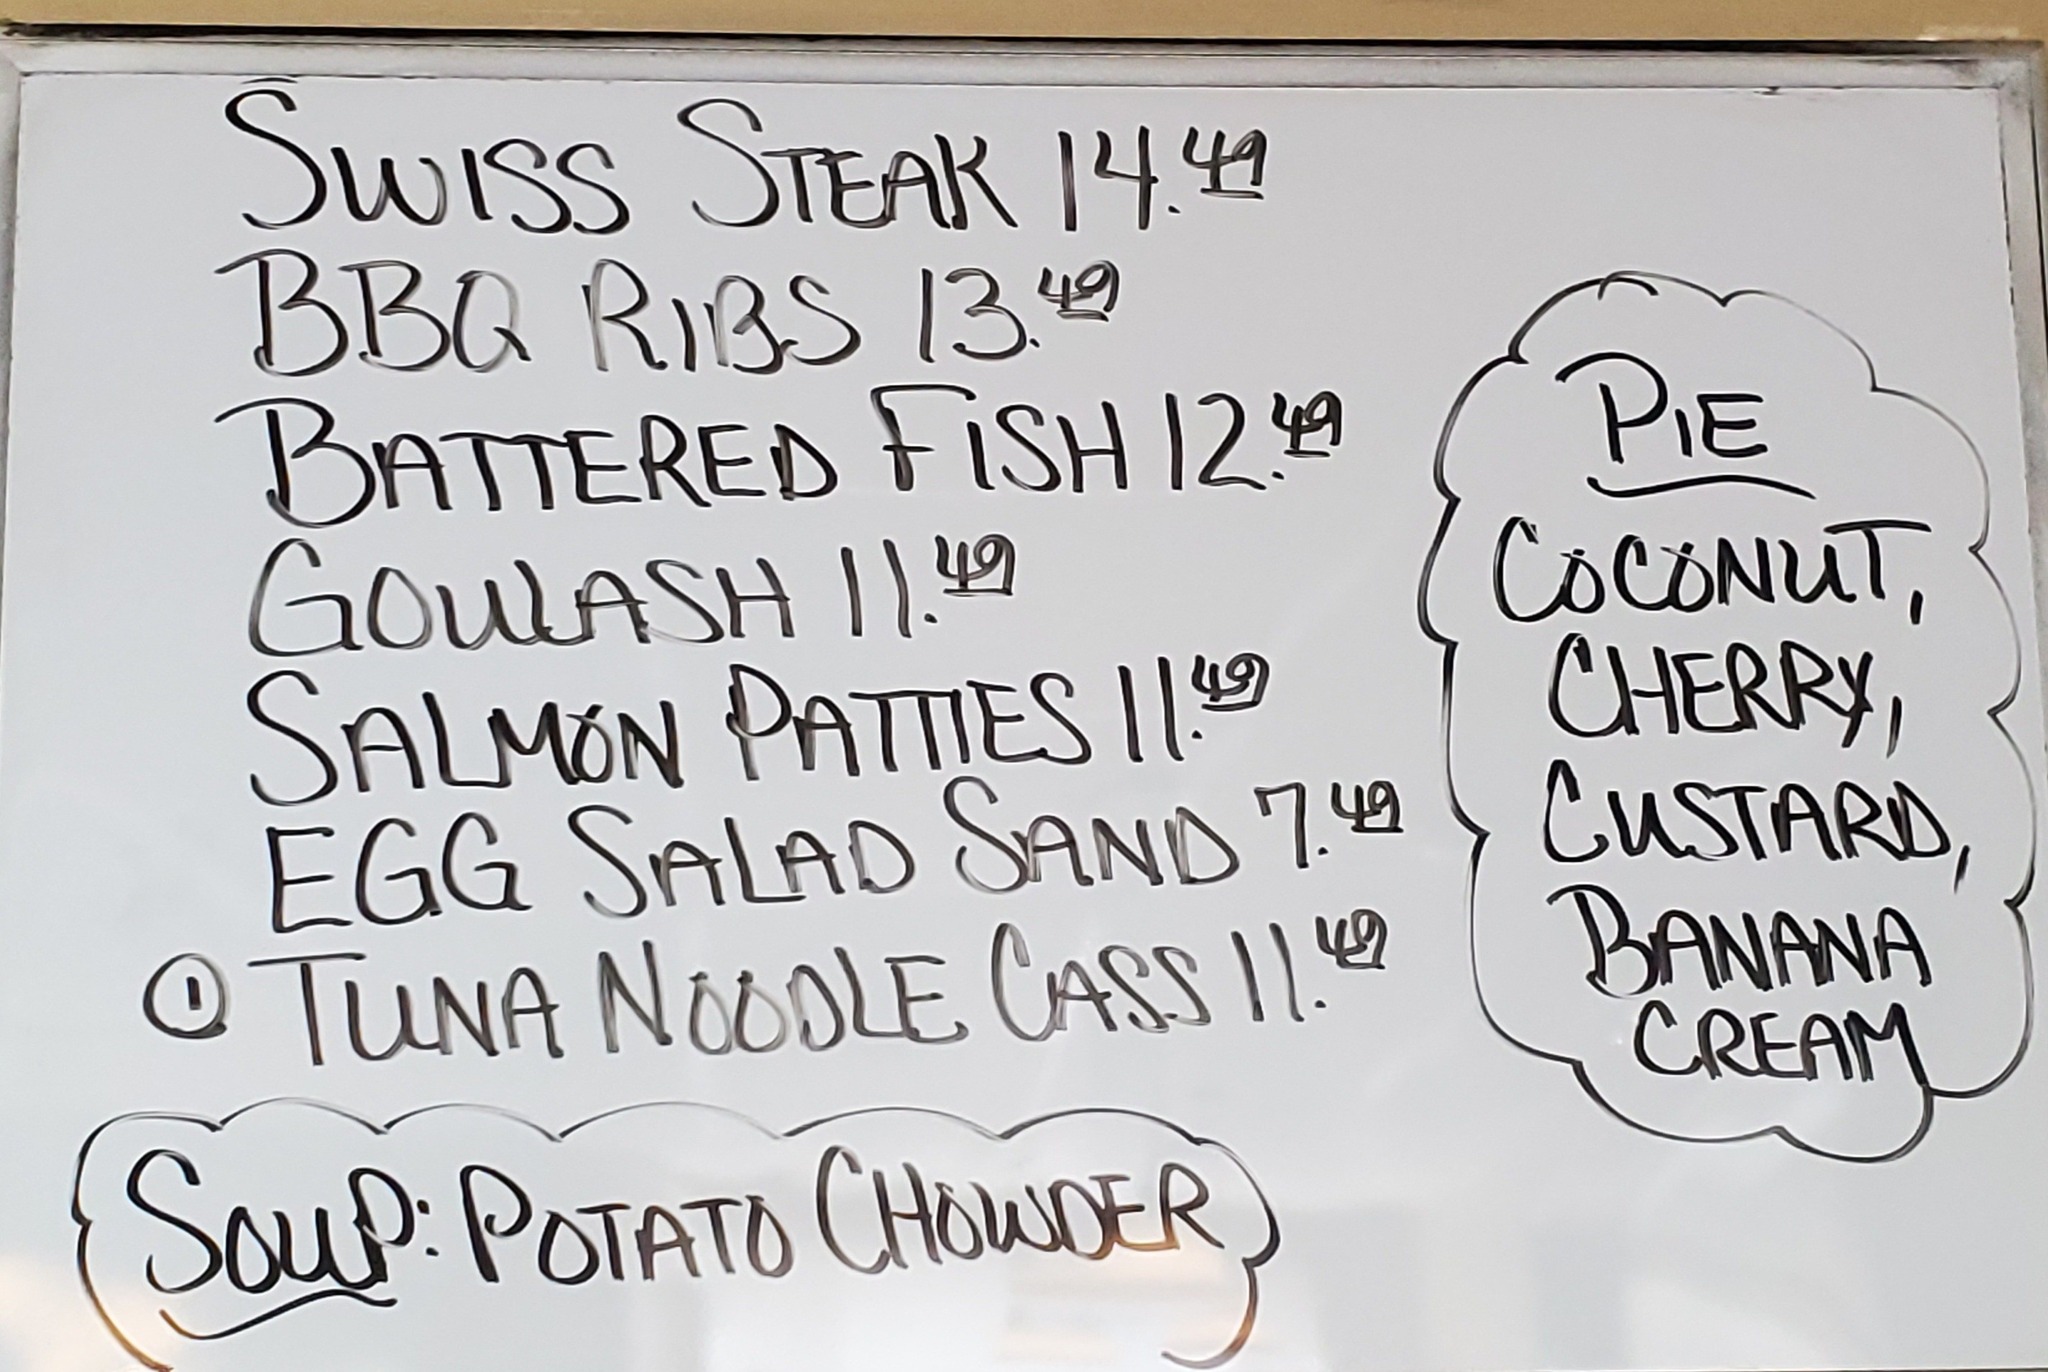 SWISS STEAK 14.49
BBQ RIBS 13.49
BATTERED FISH 12.49
GOULASH 11.49
SALMON PATTIES 11.49
EGG SALAD SAND 7.49
① TUNA NOODLE CASS 11.49
SOUP: POTATO CHOWDER
PIE
COCONUT,
CHERRY,
CUSTARD,
BANANA
CREAM